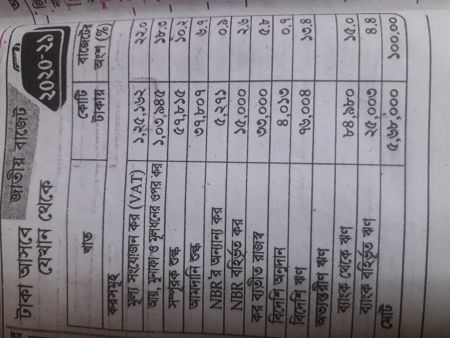 জাতীয় বাজেট
২০২০-২১
টাকা আসবে
যেখান থেকে
খাত কোটি টাকায় বাজেটের অংশ (%)
করসমূহ
মূল্য সংযোজন কর (VAT) ১,২৫,১৬২ ২২.০
আয়, মুনাফা ও মূলধনের ওপর কর ১,০৩,৯৪৫ ১৮.৩
সম্পূরক শুল্ক ৫৭,৮১৫ ১০.২
আমদানি শুল্ক ৩৭,৮০৭ ৬.৭
NBR'র অন্যান্য কর ৫,২৭১ ০.৯
NBR বহির্ভূত কর ১৫,০০০ ২.৬
কর ব্যতীত রাজস্ব ৩৩,০০০ ৫.৮
বিদেশি অনুদান ৪,০১৩ ০.৭
বিদেশি ঋণ ৭৬,০০৪ ১৩.৪
অভ্যন্তরীণ ঋণ
ব্যাংক থেকে ঋণ ৮৪,৯৮০ ১৫.০
ব্যাংক বহির্ভূত ঋণ ২৫,০০৩ ৪.৪
মোট ৫,৬৮,০০০ ১০০.০০